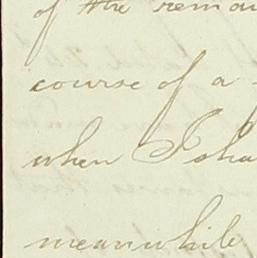 of the remai
course of a
when I sha
meanwhile